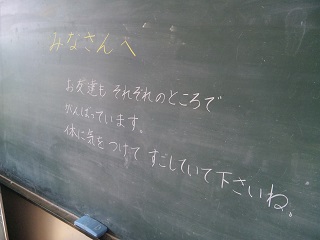 みなさんへ
お友達も それぞれのところで
がんばっています。
体に気をつけて すごしていて下さいね。